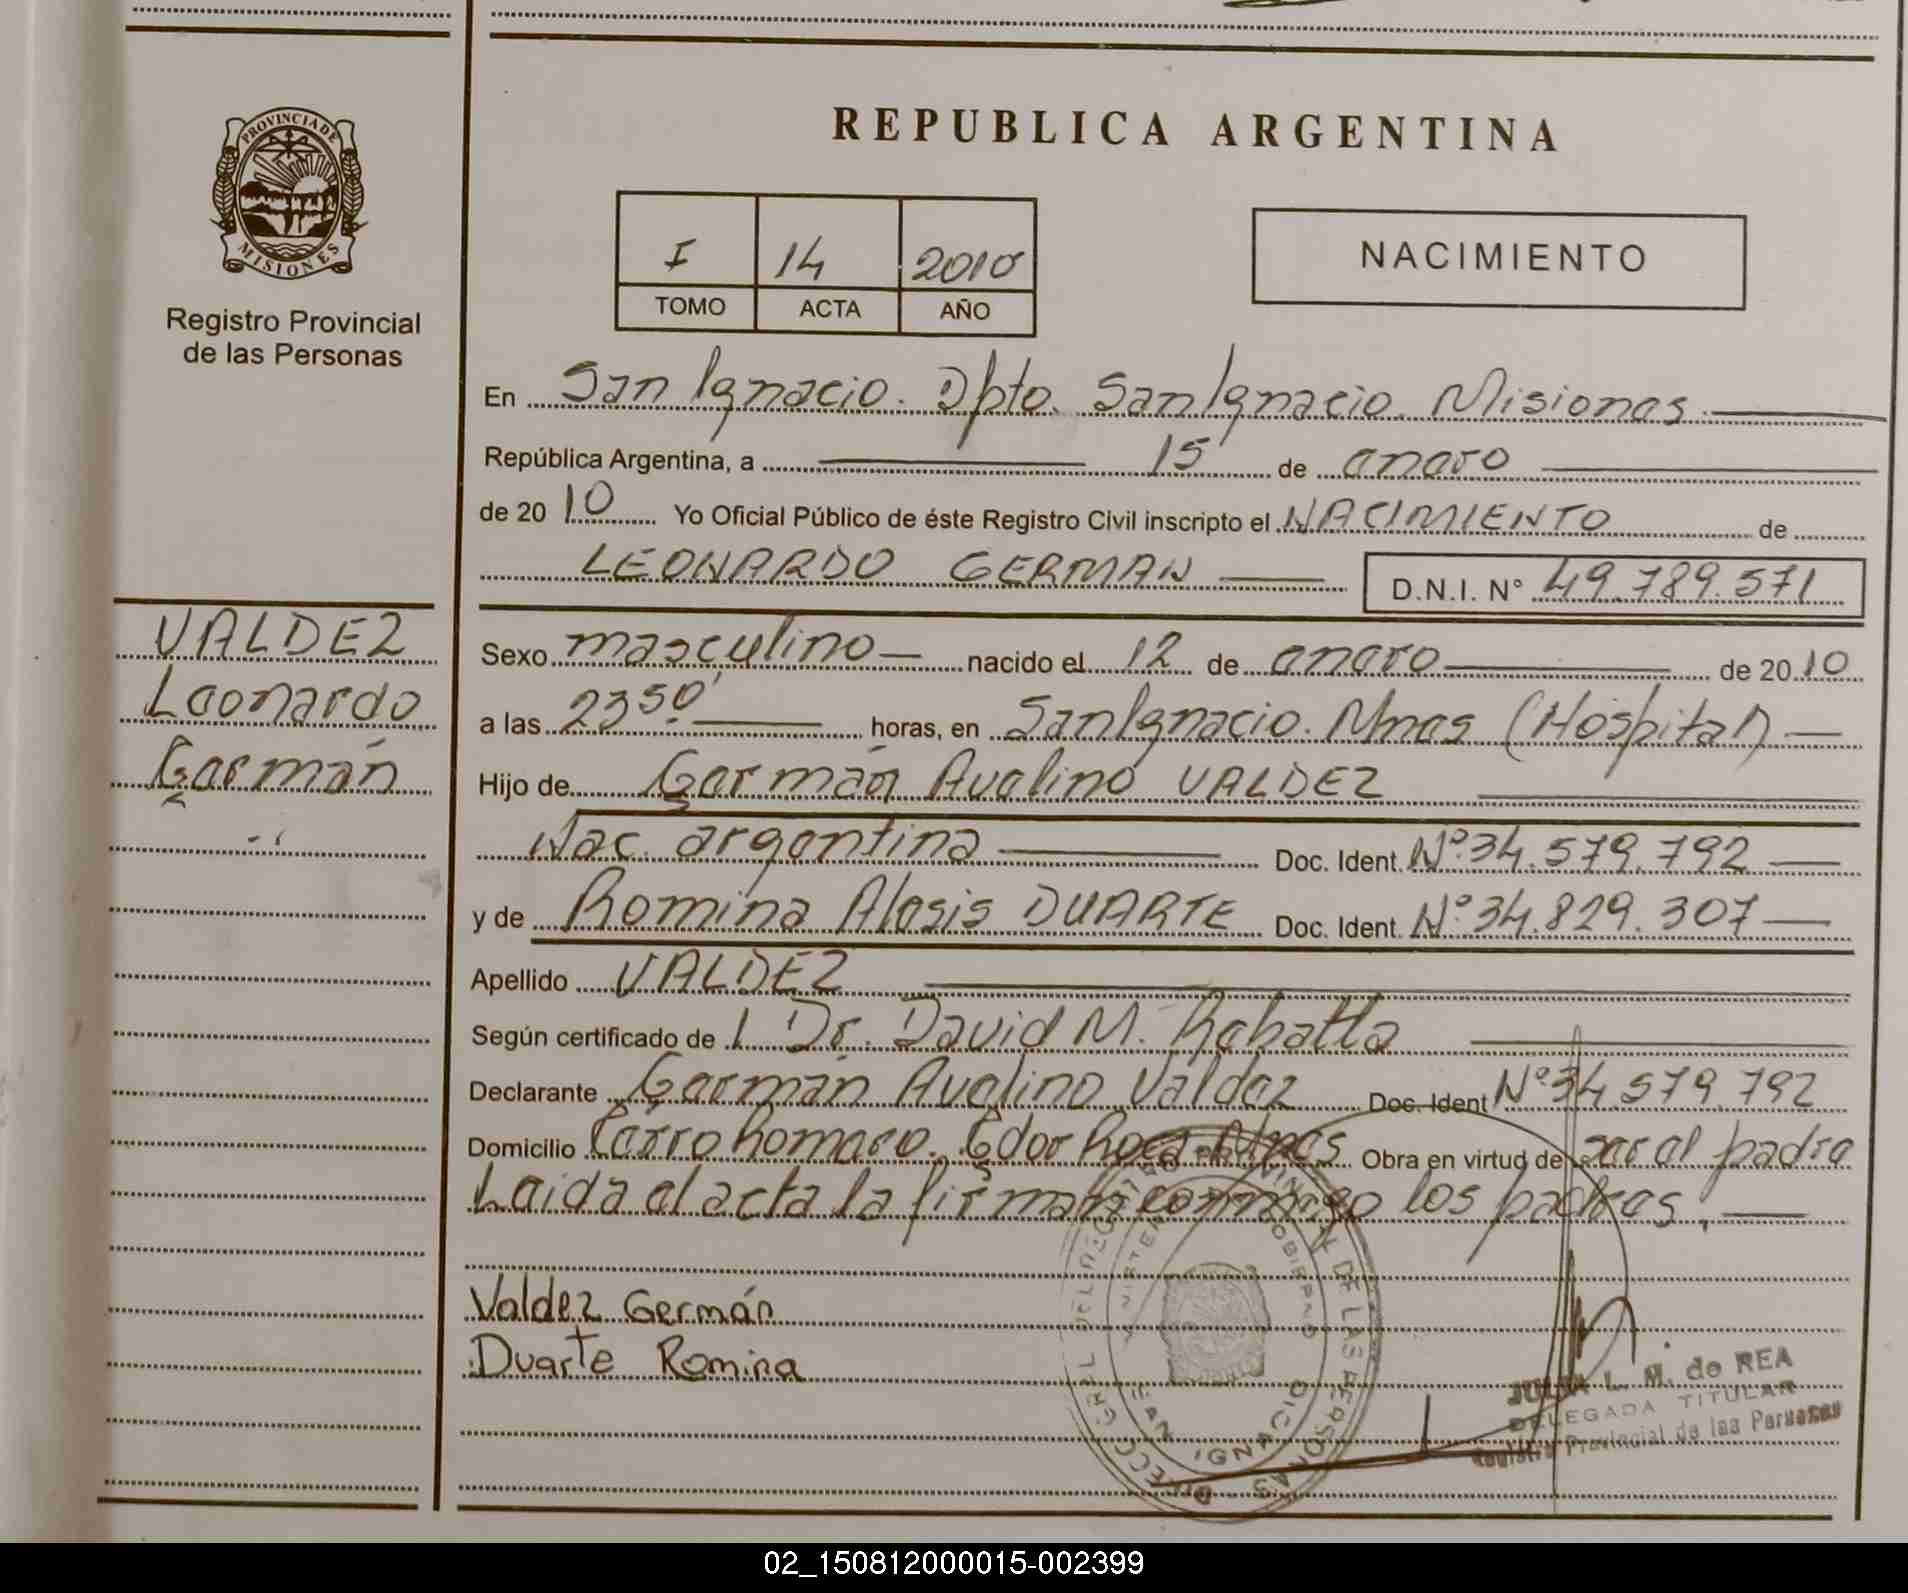 PROVINCIA DE
MISIONES
Registro Provincial
de las Personas
VALDEZ
Leonardo
Germán
REPUBLICA ARGENTINA
I 14 2010
TOMO ACTA AÑO
NACIMIENTO
En San Ignacio. Dpto. San Ignacio. Misiones.
República Argentina, a 15 de enero
de 20 10 Yo Oficial Público de éste Registro Civil inscripto el NACIMIENTO de
LEONARDO GERMAN D.N.I. N° 49.789.571
Sexo masculino nacido el 12 de enero de 20 10
a las 23 50' horas, en San Ignacio. Mnes (Hospital)
Hijo de Germán Avelino VALDEZ
Nac. argentina Doc. Ident. Nº 34.579.792
y de Romina Alesis DUARTE Doc. Ident. Nº 34.829.307
Apellido VALDEZ
Según certificado de l Dr. David M. Rebatta
Declarante Germán Avelino Valdez Doc. Ident Nº 34.579.792
Domicilio Cerro Romero. Gdor Roca Mnes Obra en virtud de ser el padre
Leida el acta la firman conmigo los padres.
Valdez Germán
Duarte Romina
JULIA L. M. de REA
DELEGADA TITULAR
Registro Provincial de las Personas
02_150812000015-002399